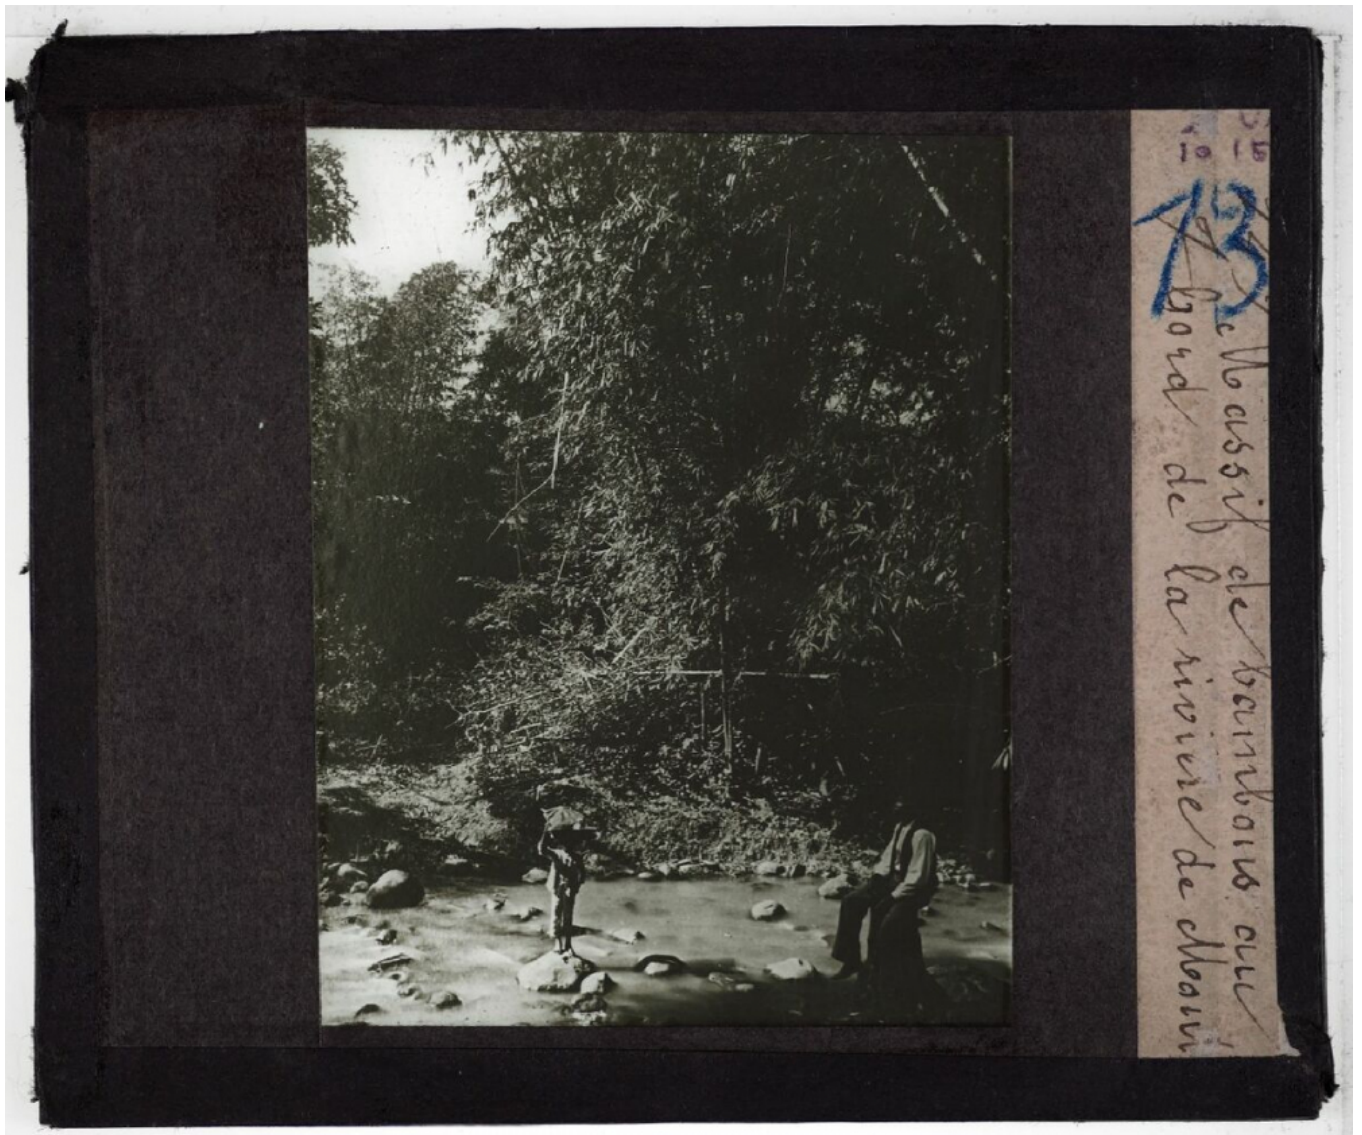 73
Massif de bambous au
bord de la riviere de